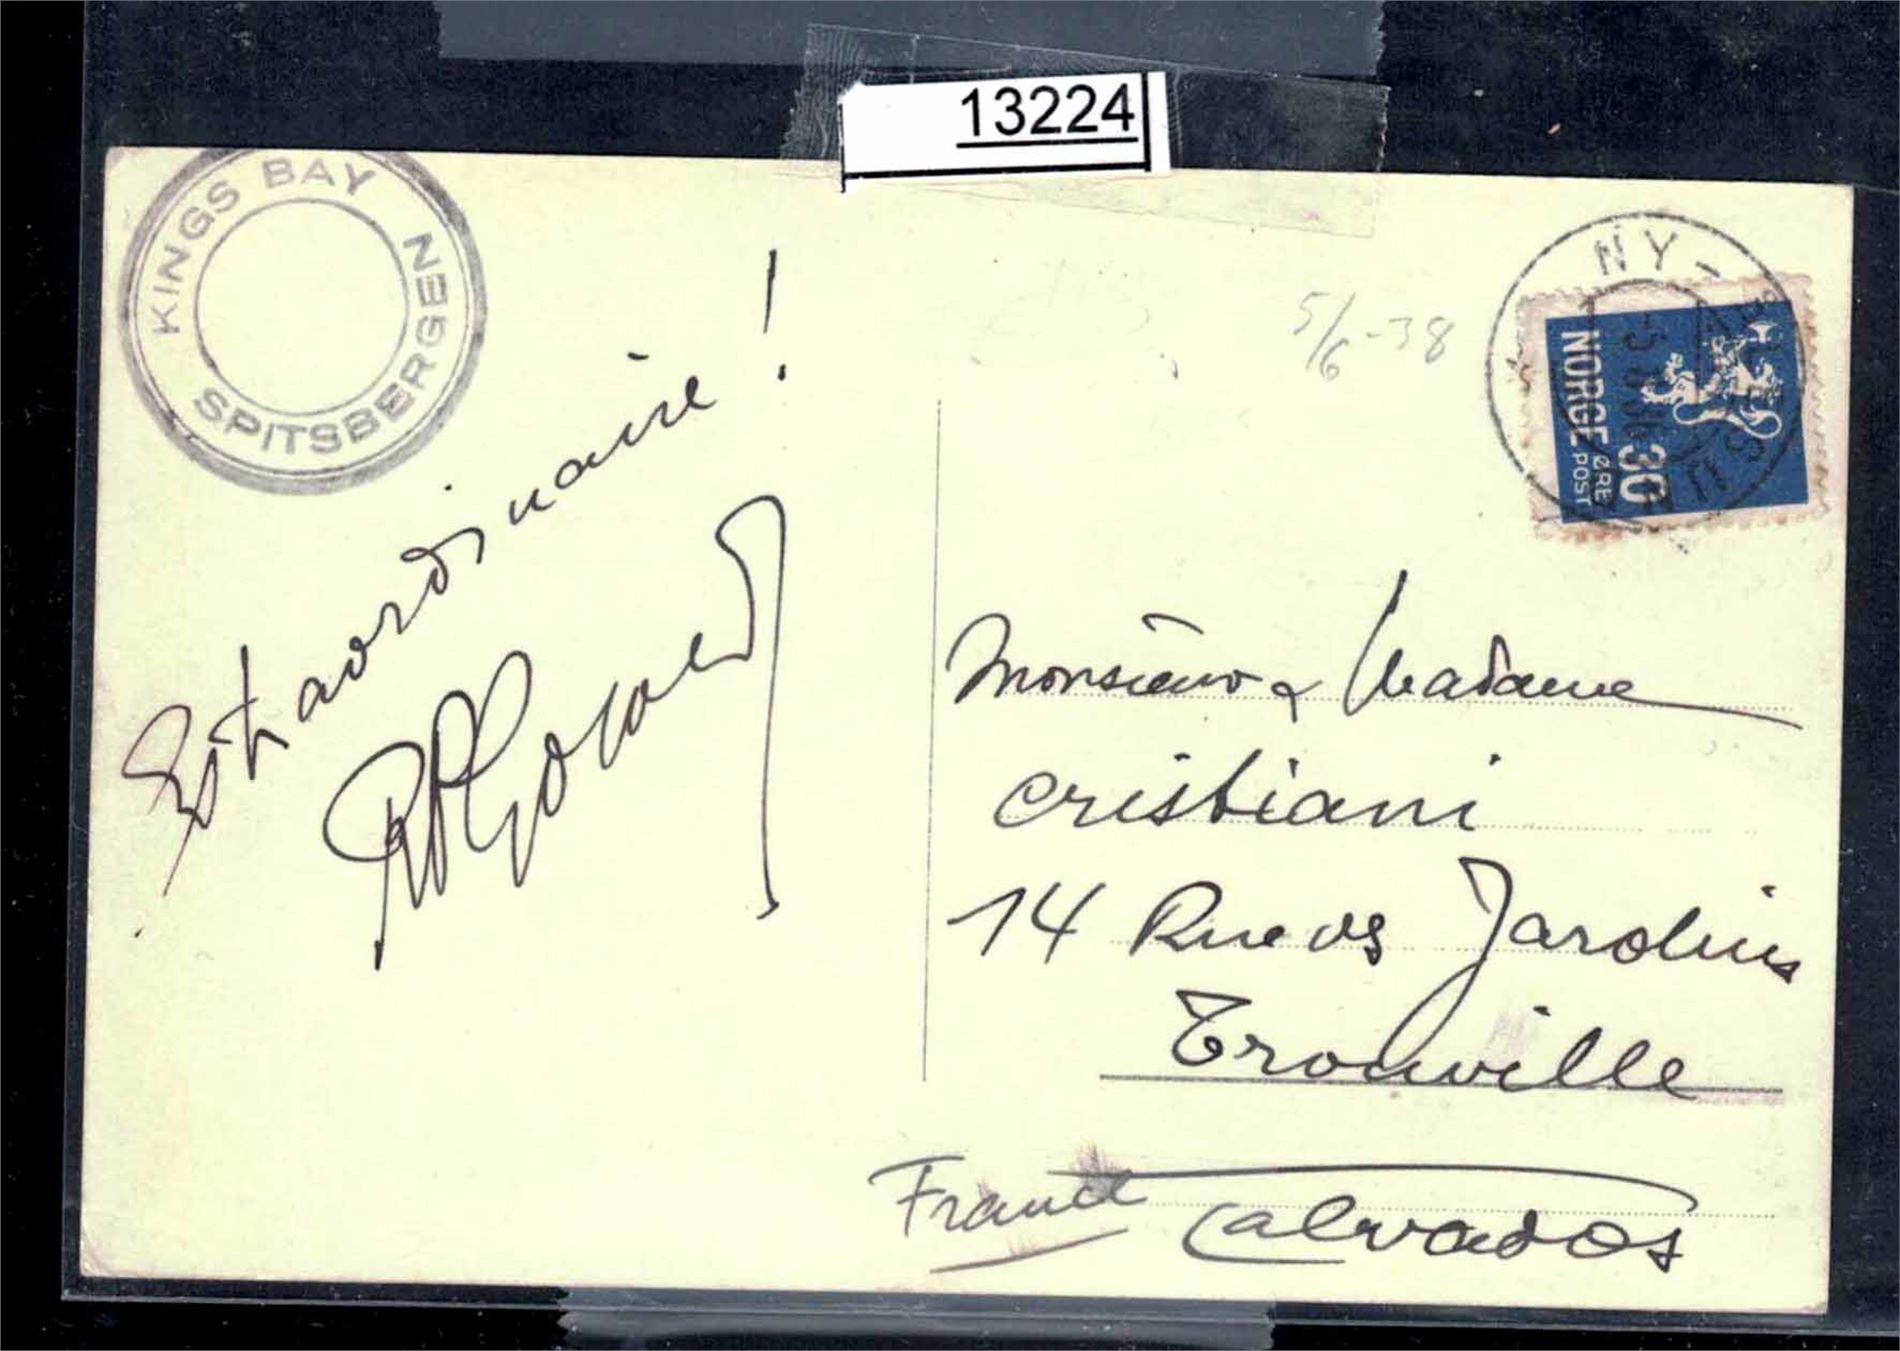 13224
KINGS BAY
SPITSBERGEN
5/6-38
NY-
NORGE
POST
30
ØRE
Extraordinaire!
Monsieur & Madame
Cristiani
14 Rue des Jardins
Trouville
France
Calvados